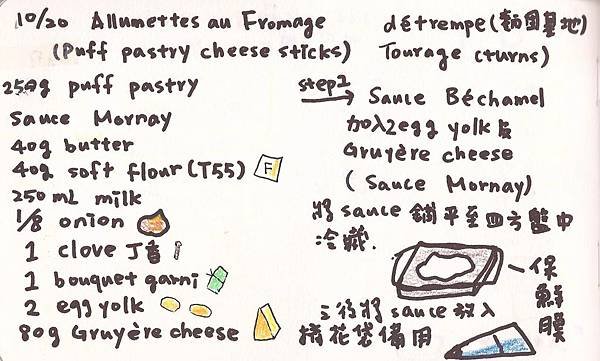 10/20 Allumettes au Fromage
(Puff pastry cheese sticks)
250g puff pastry
Sauce Mornay
40g butter
40g soft flour (T55) F
250 mL milk
1/8 onion
1 clove 丁香
1 bouquet garni
2 egg yolk
80g Gruyère cheese
détrempe (麵團基地)
Tourage (turns)
step1
→ Sauce Béchamel
加入2egg yolk后
Gruyère cheese
(Sauce Mornay)
將sauce鋪平至四方盤中
冷藏.
保鮮膜
之後將sauce放入
擠花袋備用